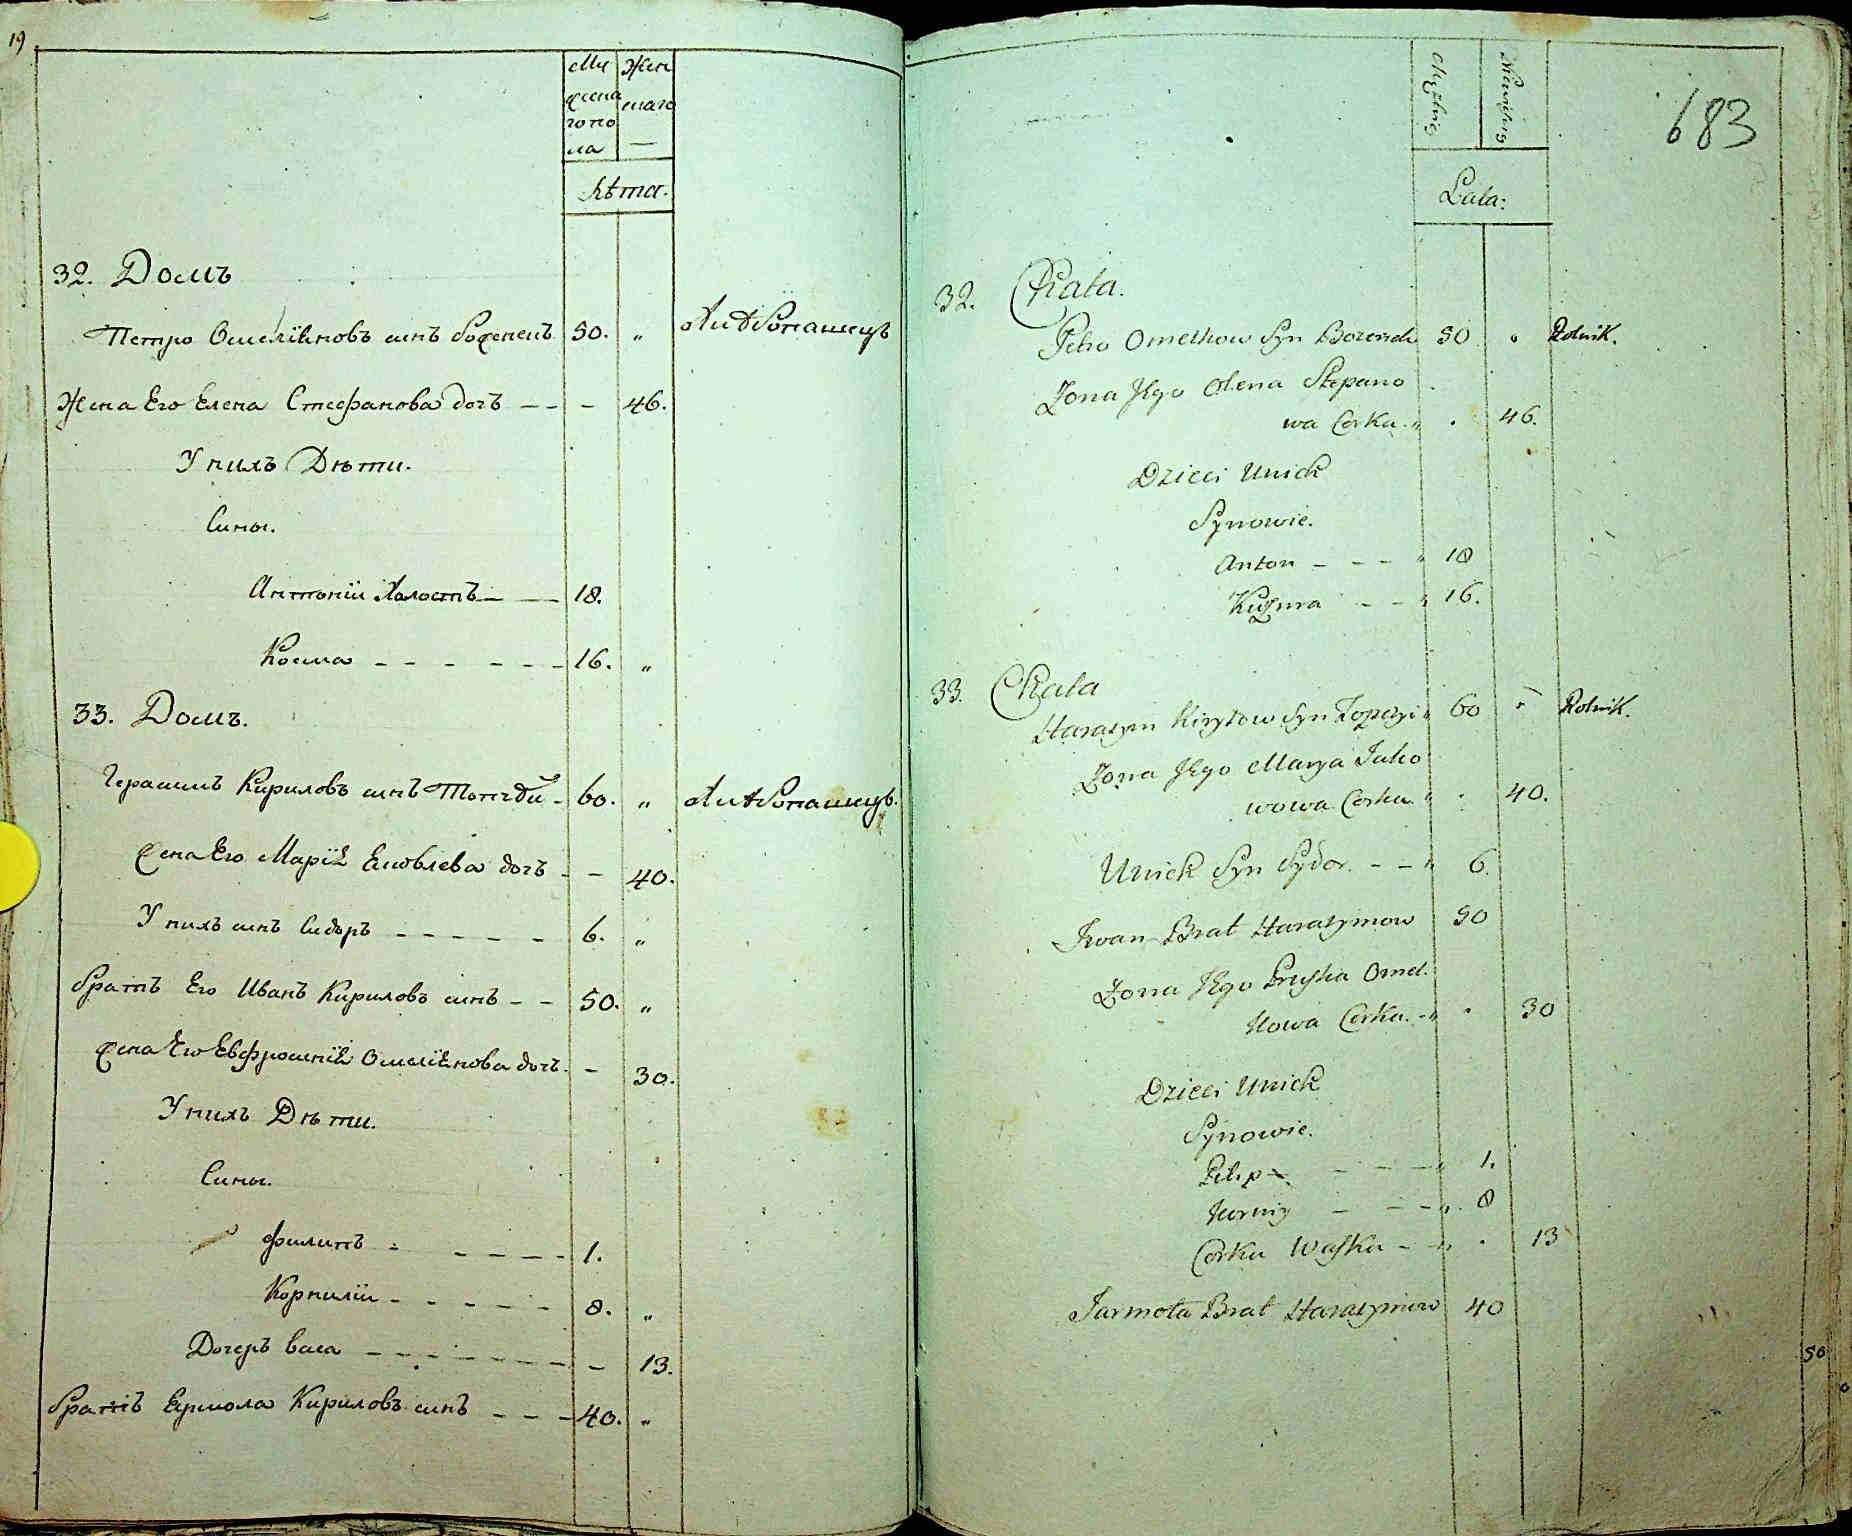 19
Му Жен
жеска скаго
го по
ла
Лѣта.
32. Домъ
Петро Омелїяновъ синъ 50. „
Жена Его Елена Стефанова дочъ — — — 46.
У нихъ Дѣти.
Сины.
Антонїи Холостъ — — 18.
Косма — — — — — — 16. „
33. Домъ.
Герасимъ Кириловъ синъ 60. „
жена Его Марїя Яковлева дочъ — — 40.
У нихъ синъ Сидоръ — — — — — 6. „
братъ Его Иванъ Кириловъ синъ — — 50. „
жена Его Евфросинїя Омелїянова дочъ. — 30.
У нихъ Дѣти.
Сины.
Филипъ — — — — — 1.
Корнилїи — — — — — 8. „
Дочеръ Васа — — — — — — — — 13.
братъ Ермола Кириловъ синъ — — — 40. „
683
Męzkiey Niewiesciey
Lata:
32. Chata.
Petro Omelkow Syn 50 „ Rolnik.
Zona Jego Olena Stepano
wa Corka „ . 46.
Dzieci Unich
Synowie.
Anton — — — „ 18
Kuzma — — „ 16.
33. Chata
Harasym Kiryłow Syn „ 60 „ Rolnik.
Zona Jego Marya Jako
wowa Corka. „ . 40.
Unich Syn Sydor. — — „ 6.
Iwan Brat Harasymow 50
Zona Jego Pryska Omel.
kowa Corka. — „ . 30
Dzieci Unich
Synowie.
Pilip — — — — „ 1.
Kornij — — — „ 8
Corka Waska — — „ . 13
Jarmoła Brat Harasymow 40
50